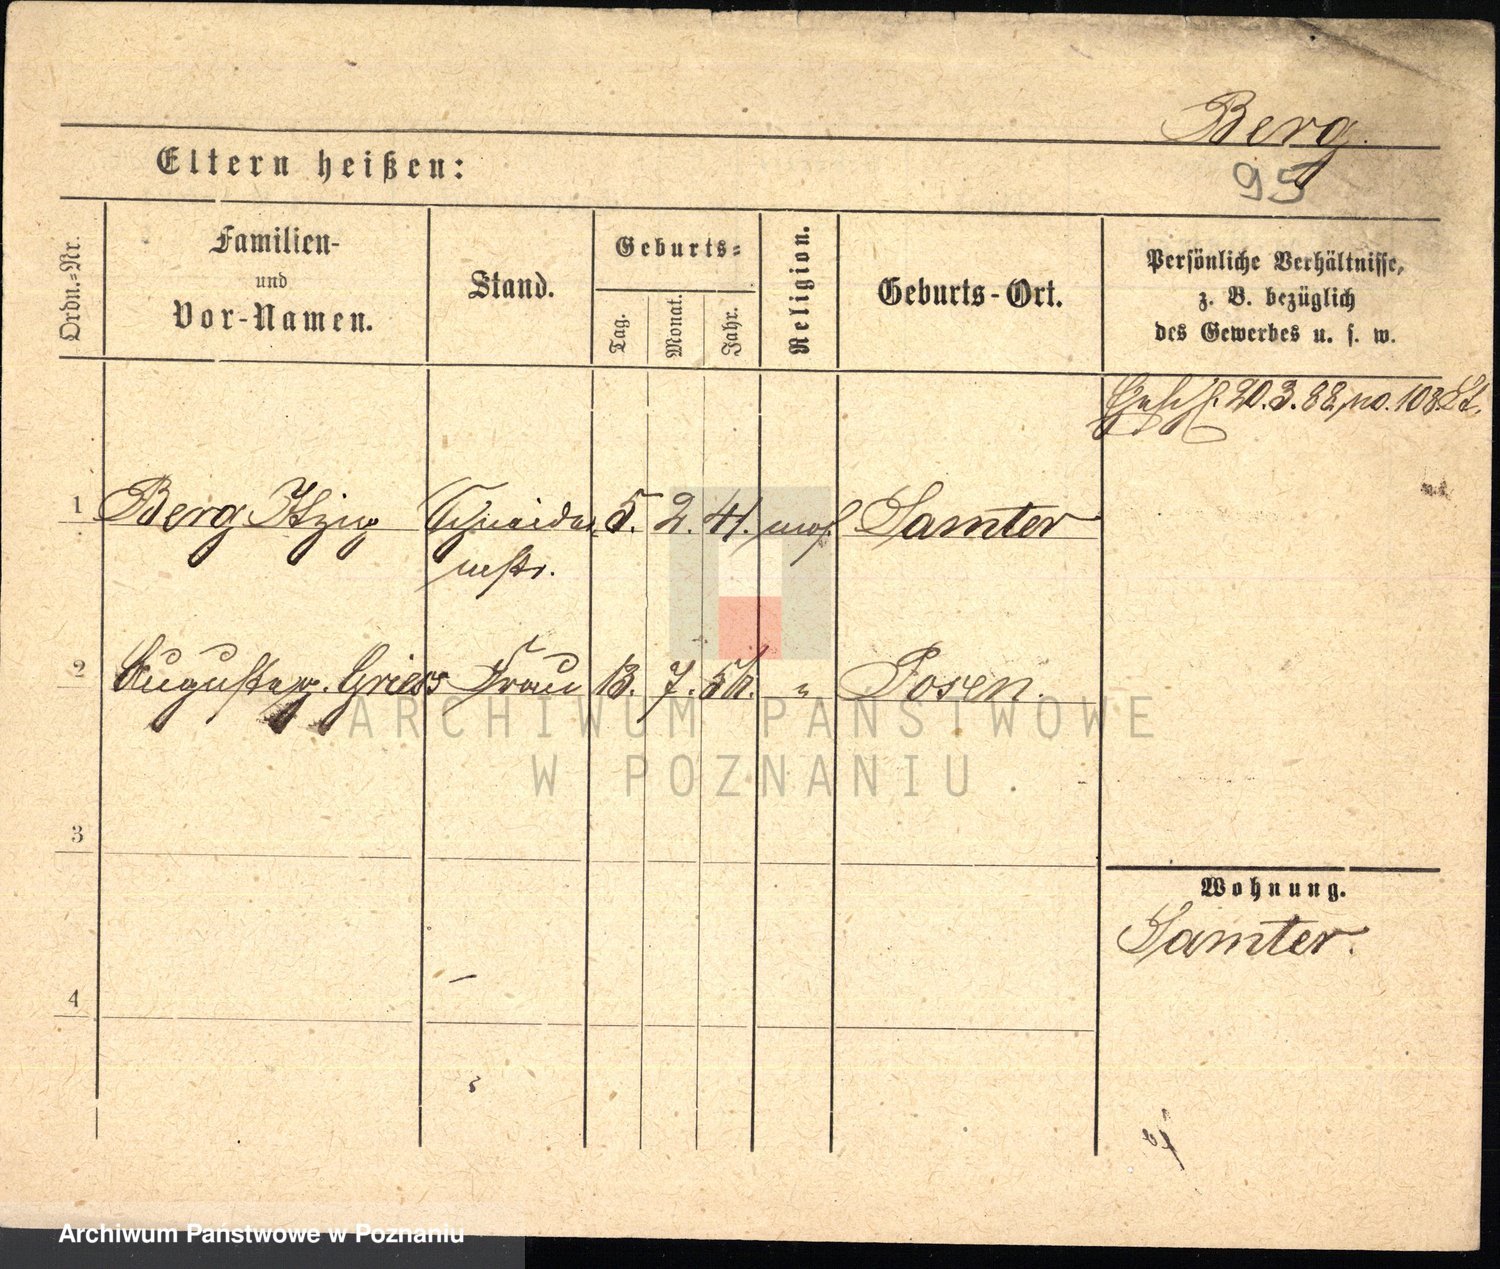 Berg.
Eltern heißen:
95
Ordn.-Nr.
Familien-
und
Vor-Namen.
Stand.
Geburts-
Tag.
Monat.
Jahr.
Religion.
Geburts-Ort.
Persönliche Verhältnisse,
z. B. bezüglich
des Gewerbes u. s. w.
20.3.88 no. 108
1 Berg Itzig Schneider 5. 2. 41. mos. Samter
mstr.
2 Auguste g. Griess Frau 13. 7. 51. " Posen.
ARCHIWUM PAŃSTWOWE
W POZNANIU
3
Wohnung.
Samter.
4
Archiwum Państwowe w Poznaniu